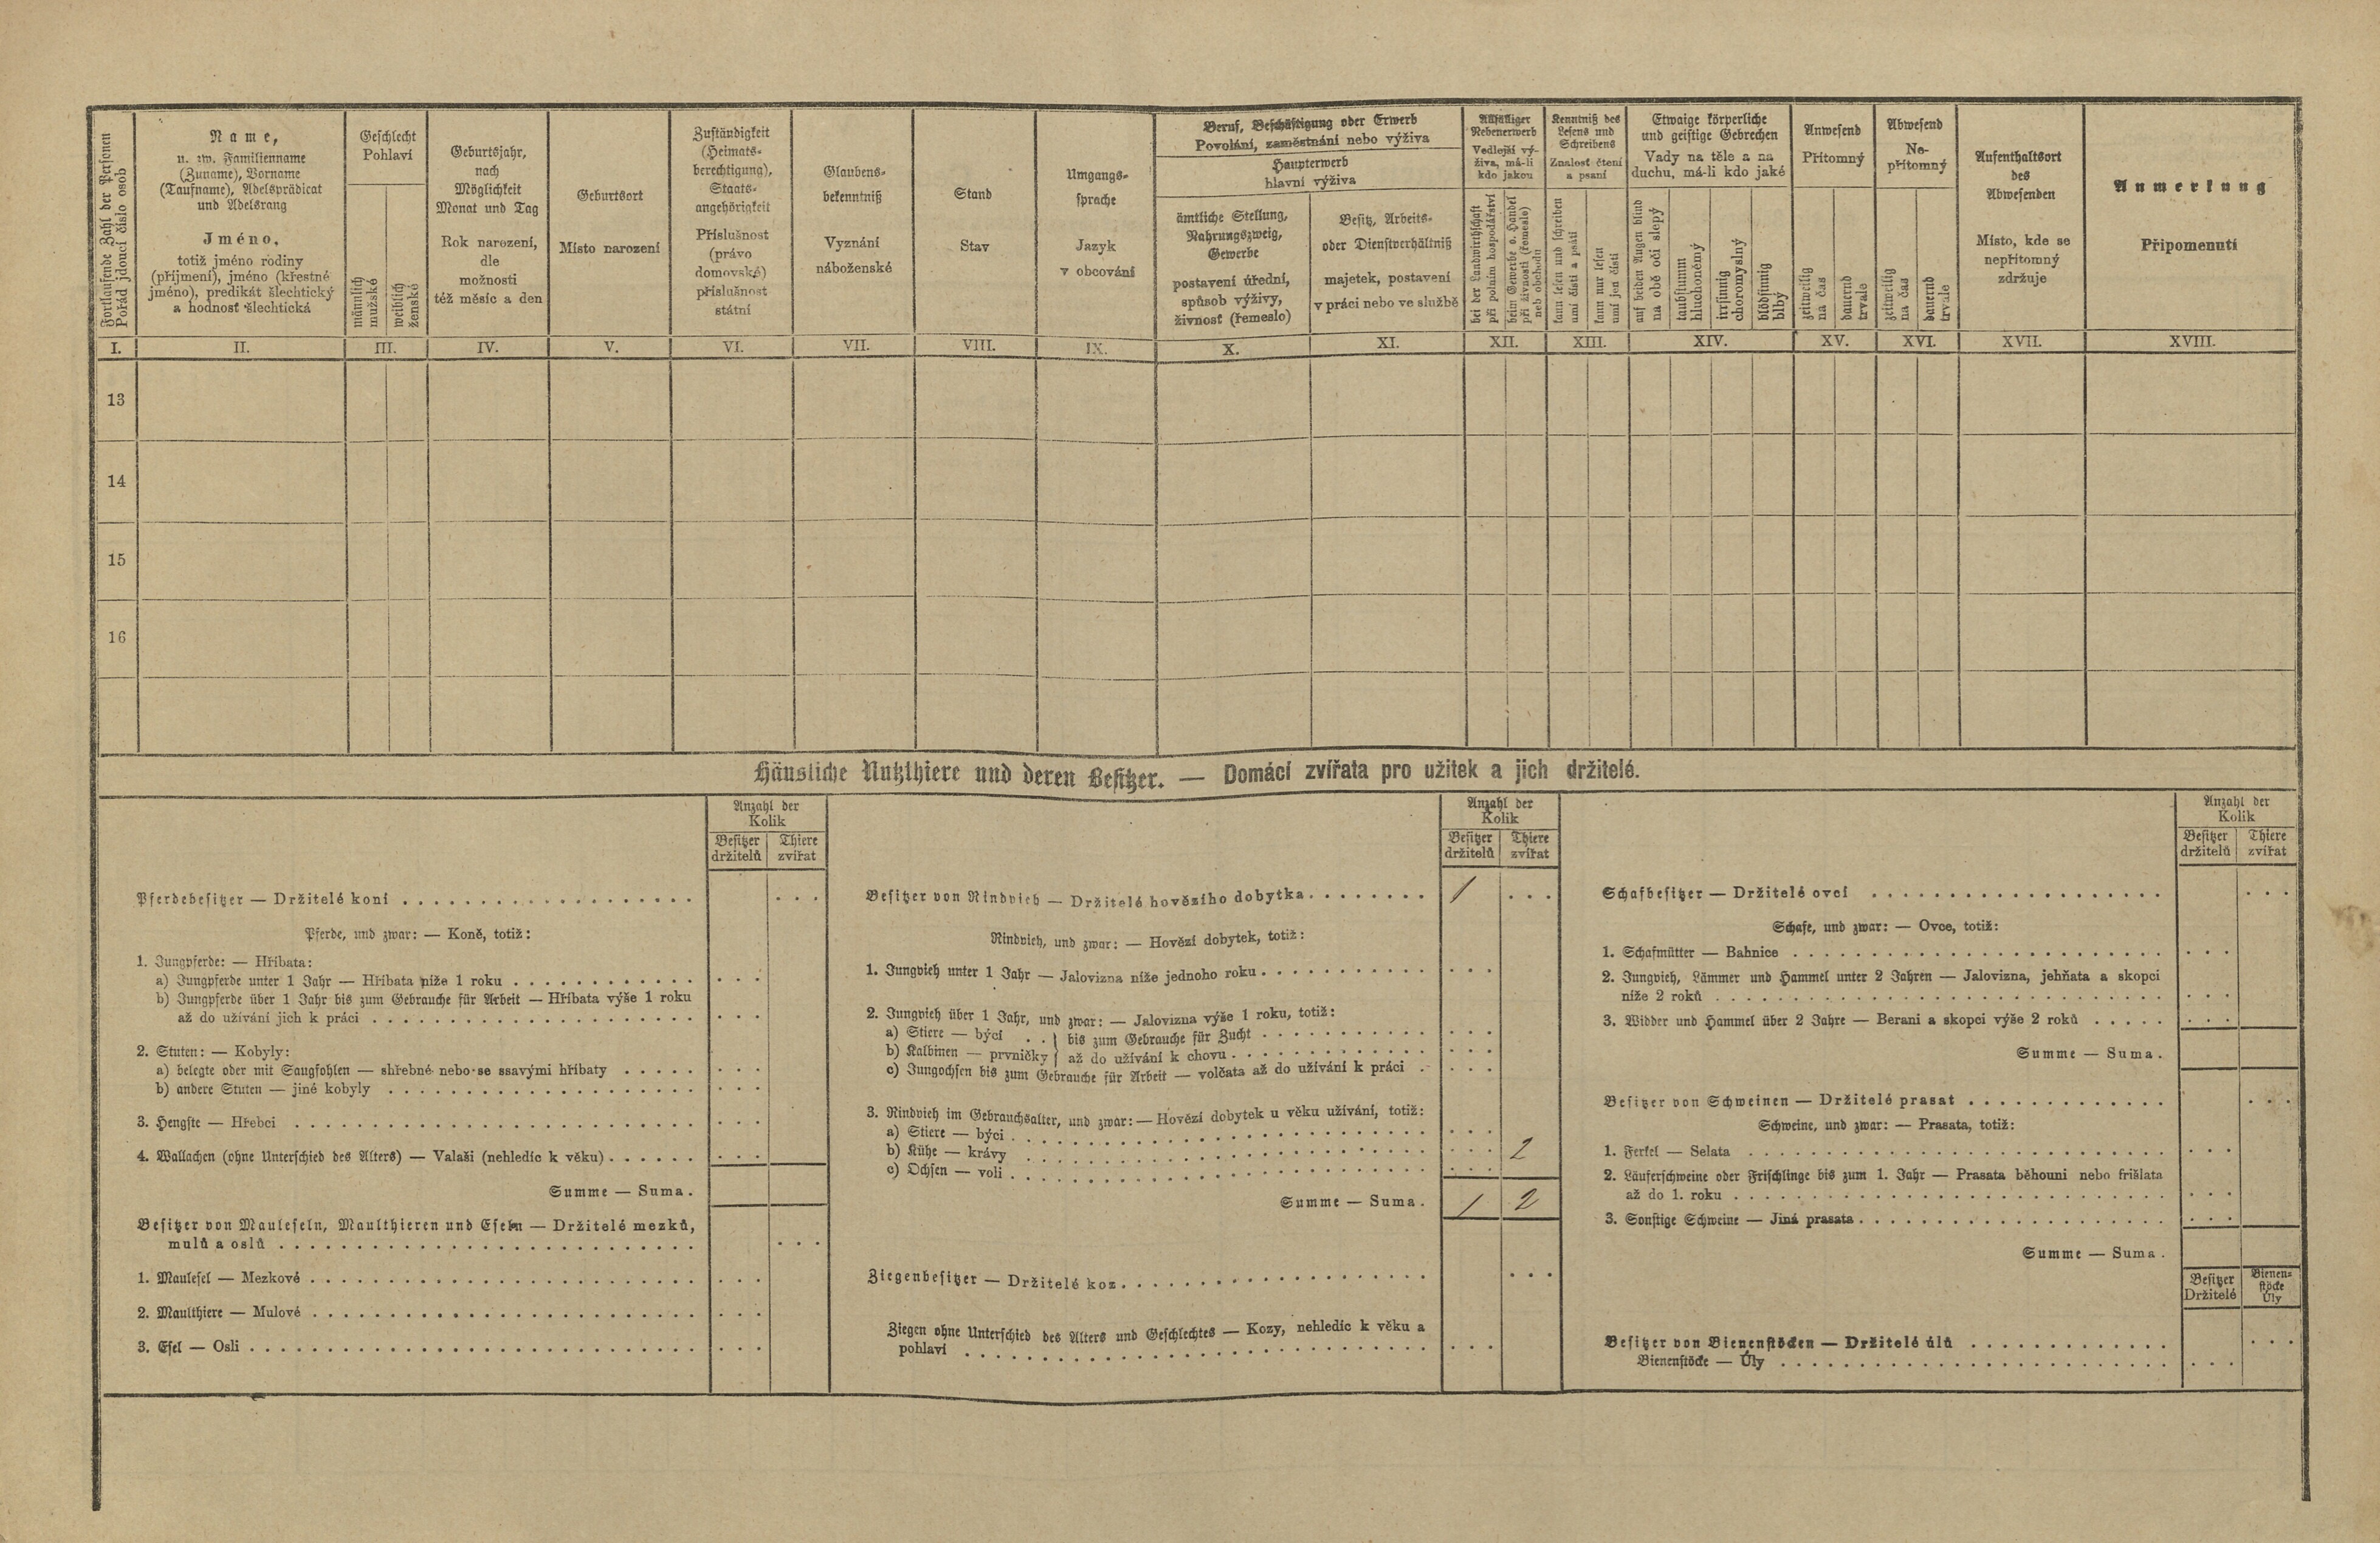 Fortlaufende Zahl der Personen
Pořád jdoucí číslo osob
Name,
u. zw. Familienname
(Zuname), Vorname
(Taufname), Adelsprädicat
und Adelsrang
Jméno,
totiž jméno rodiny
(příjmení), jméno (křestné
jméno), predikát šlechtický
a hodnosť šlechtická
Geschlecht
Pohlaví
männlich
mužské
weiblich
ženské
Geburtsjahr,
nach
Möglichkeit
Monat und Tag
Rok narození,
dle
možnosti
též měsíc a den
Geburtsort
Místo narození
Zuständigkeit
(Heimats-
berechtigung),
Staats-
angehörigkeit
Příslušnost
(právo
domovské)
příslušnost
státní
Glaubens-
bekenntniß
Vyznání
náboženské
Stand
Stav
Umgangs-
sprache
Jazyk
v obcování
Beruf, Beschäftigung oder Erwerb
Povolání, zaměstnání nebo výživa
Haupterwerb
hlavní výživa
ämtliche Stellung,
Nahrungszweig,
Gewerbe
postavení úřední,
spůsob výživy,
živnosť (řemeslo)
Besitz, Arbeits-
oder Dienstverhältniß
majetek, postavení
v práci nebo ve službě
Allfälliger
Nebenerwerb
Vedlejší vý-
živa, má-li
kdo jakou
bei der Landwirthschaft
při polním hospodářství
beim Gewerbe o. Handel
při živnosti (řemesle)
neb obchodu
Kenntniß des
Lesens und
Schreibens
Znalosť čtení
a psaní
kann lesen und schreiben
umí čísti a psáti
kann nur lesen
umí jen čísti
Etwaige körperliche
und geistige Gebrechen
Vady na těle a na
duchu, má-li kdo jaké
auf beiden Augen blind
na obě oči slepý
taubstumm
hluchoněmý
irrsinnig
choromyslný
blödsinnig
blbý
Anwesend
Přítomný
zeitweilig
na čas
dauernd
trvale
Abwesend
Ne-
přítomný
zeitweilig
na čas
dauernd
trvale
Aufenthaltsort
des
Abwesenden
Místo, kde se
nepřítomný
zdržuje
Anmerkung
Připomenutí
I. II. III. IV. V. VI. VII. VIII. IX. X. XI. XII. XIII. XIV. XV. XVI. XVII. XVIII.
13
14
15
16
Häusliche Nutzthiere und deren Besitzer. — Domácí zvířata pro užitek a jich držitelé.
Anzahl der
Kolik
Besitzer
držitelů
Thiere
zvířat
Pferdebesitzer — Držitelé koní
Pferde, und zwar: — Koně, totiž:
1. Jungpferde: — Hříbata:
a) Jungpferde unter 1 Jahr — Hříbata níže 1 roku
b) Jungpferde über 1 Jahr bis zum Gebrauche für Arbeit — Hříbata výše 1 roku
až do užívání jich k práci
2. Stuten: — Kobyly:
a) belegte oder mit Saugfohlen — shřebné nebo se ssavými hříbaty
b) andere Stuten — jiné kobyly
3. Hengste — Hřebci
4. Wallachen (ohne Unterschied des Alters) — Valaši (nehledíc k věku)
Summe — Suma.
Besitzer von Mauleseln, Maulthieren und Eseln — Držitelé mezků,
mulů a oslů
1. Maulesel — Mezkové
2. Maulthiere — Mulové
3. Esel — Osli
Anzahl der
Kolik
Besitzer
držitelů
Thiere
zvířat
Besitzer von Rindvieh — Držitelé hovězího dobytka 1
Rindvieh, und zwar: — Hovězí dobytek, totiž:
1. Jungvieh unter 1 Jahr — Jalovizna níže jednoho roku
2. Jungvieh über 1 Jahr, und zwar: — Jalovizna výše 1 roku, totiž:
a) Stiere — býci . . } bis zum Gebrauche für Zucht
b) Kalbinen — prvničky } až do užívání k chovu
c) Jungochsen bis zum Gebrauche für Arbeit — volčata až do užívání k práci
3. Rindvieh im Gebrauchsalter, und zwar: — Hovězí dobytek u věku užívání, totiž:
a) Stiere — býci
b) Kühe — krávy 2
c) Ochsen — voli
Summe — Suma. 1 2
Ziegenbesitzer — Držitelé koz
Ziegen ohne Unterschied des Alters und Geschlechtes — Kozy, nehledíc k věku a
pohlaví
Anzahl der
Kolik
Besitzer
držitelů
Thiere
zvířat
Schafbesitzer — Držitelé ovcí
Schafe, und zwar: — Ovce, totiž:
1. Schafmütter — Bahnice
2. Jungvieh, Lämmer und Hammel unter 2 Jahren — Jalovizna, jehňata a skopci
níže 2 roků
3. Widder und Hammel über 2 Jahre — Berani a skopci výše 2 roků
Summe — Suma.
Besitzer von Schweinen — Držitelé prasat
Schweine, und zwar: — Prasata, totiž:
1. Ferkel — Selata
2. Läuferschweine oder Frischlinge bis zum 1. Jahr — Prasata běhouni nebo frišlata
až do 1. roku
3. Sonstige Schweine — Jiná prasata
Summe — Suma.
Besitzer
Držitelé
Bienen-
stöcke
Úly
Besitzer von Bienenstöcken — Držitelé úlů
Bienenstöcke — Úly